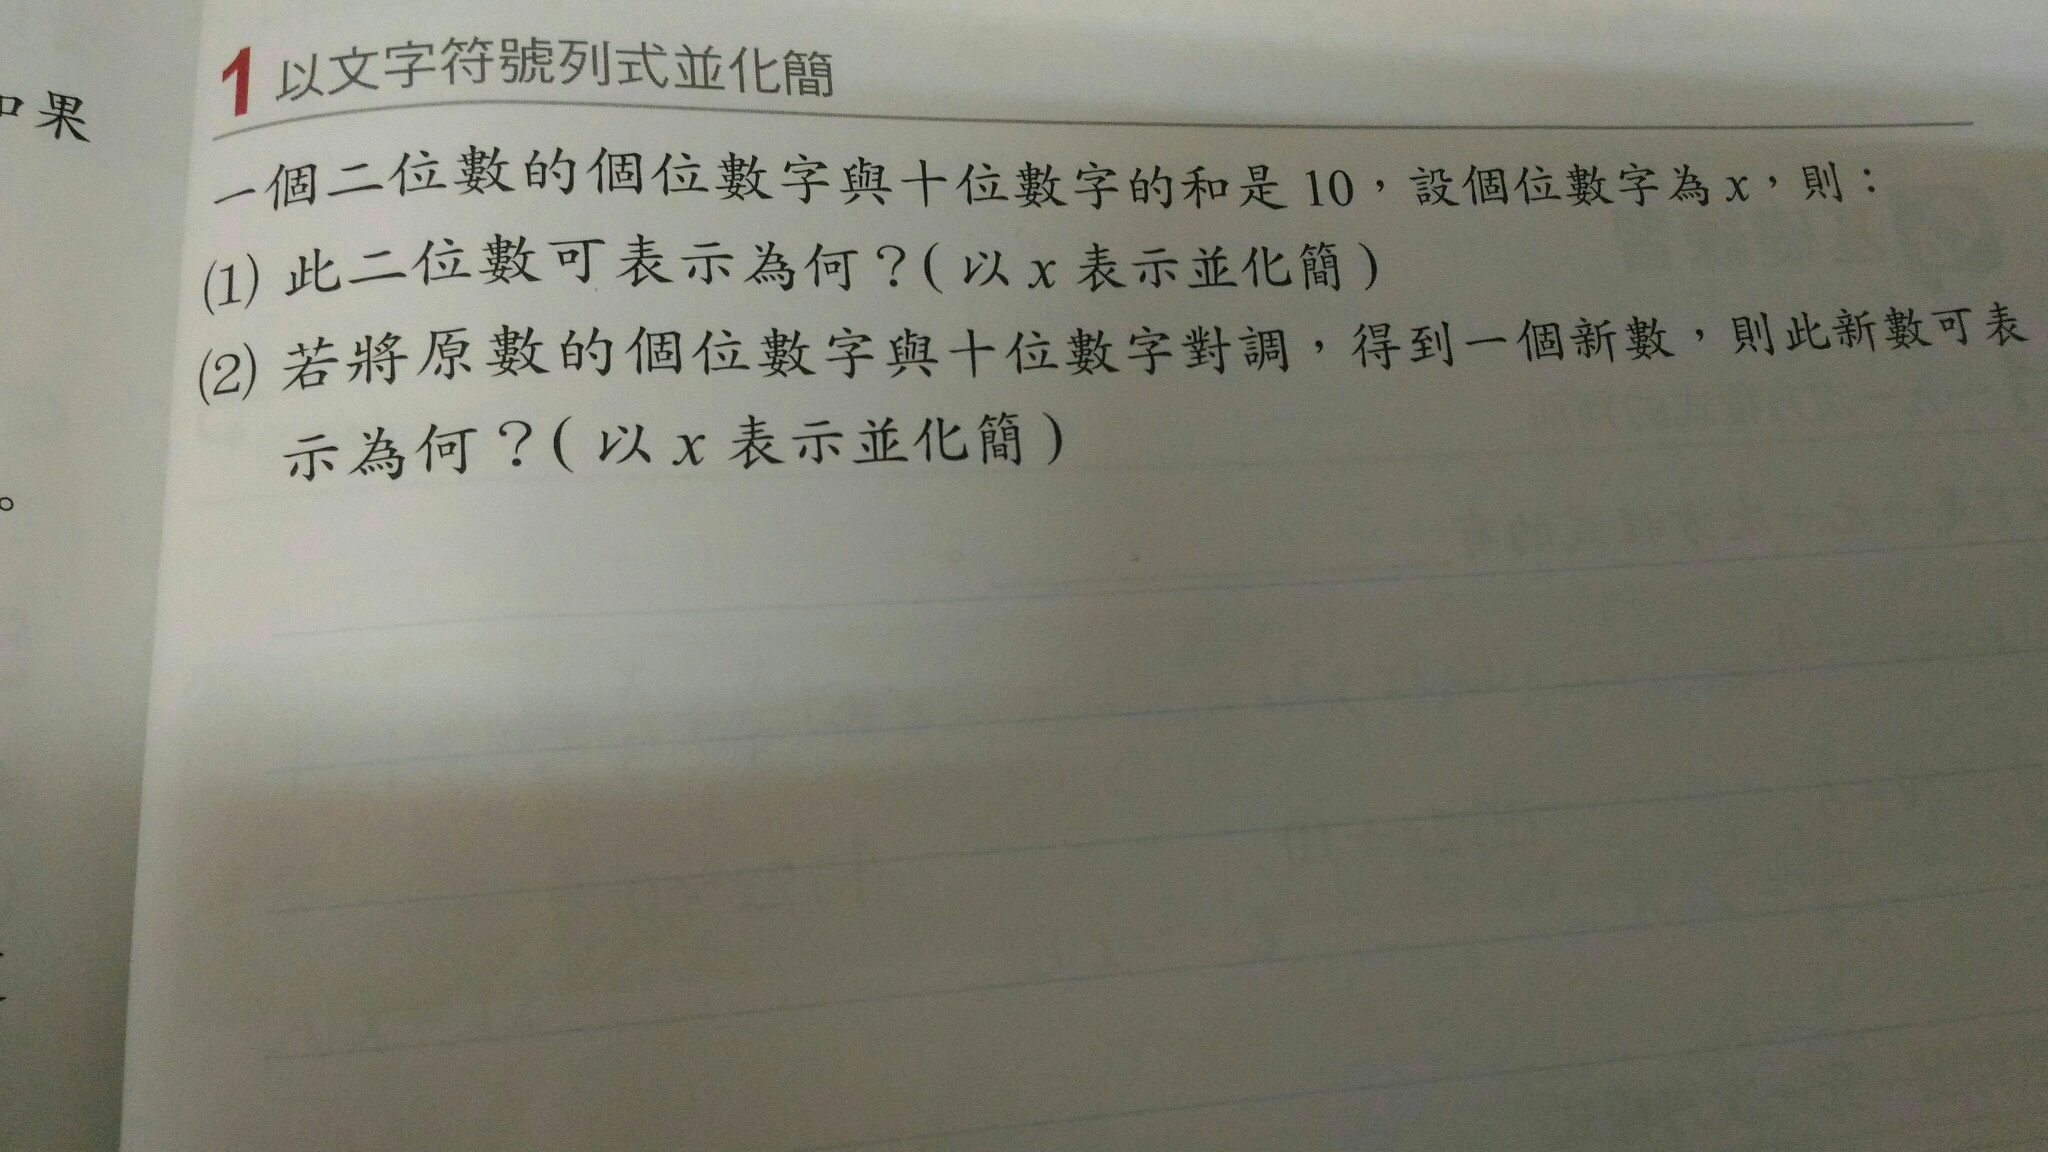 果
1 以文字符號列式並化簡
一個二位數的個位數字與十位數字的和是 10，設個位數字為 x，則：
(1) 此二位數可表示為何？( 以 x 表示並化簡 )
(2) 若將原數的個位數字與十位數字對調，得到一個新數，則此新數可表
示為何？( 以 x 表示並化簡 )
。